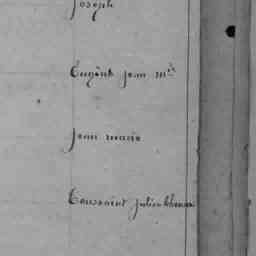 Joseph
Eugène Jean M.ie
Jean Marie
Toussaint Julien